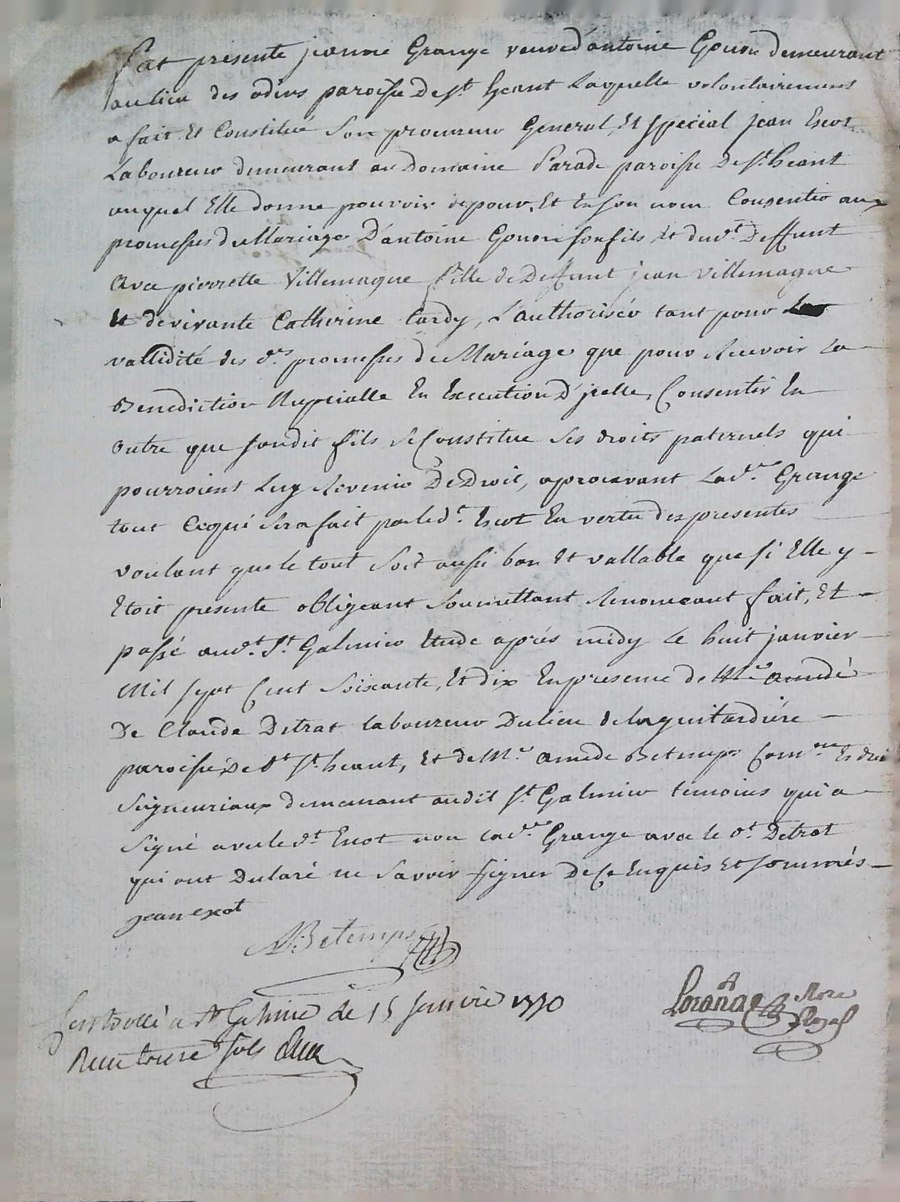 fut presente jeanne Grange veuve d'antoine Gonon demeurant
au lieu des odins paroisse de st heant Laquelle volontairement
a fait Et Constitué Son procureur General, Et special jean Escot
Laboureur demeurant au Domaine parade paroisse De st heant
auquel Elle donne pouvoir de pour, Et En Son nom Consentir aux
promesses de Mariage D'antoine Gonon son fils Et du dt. Deffunt
avec pierrette Villemagne fille de Deffunt jean villemagne
Et de vivante Catherine tardy, L'authoriser tant pour La
vallidité des dtes promesses de Mariage que pour Recevoir La
Benediction Nuptialle En Execution D'jcelle, Consentir En
outre que sondit fils Se Constitue Ses droits paternels qui
pourroient Luy Revenir De Droit, aprouvant Lad.te Grange
tout Ce qui Sera fait par led.t Escot En vertu des presentes
voulant que le tout Soit aussi bon Et vallable que si Elle y
Etoit presente obligeant Soumettant Renoncant fait, Et
passé aud.t St. Galmier Etude après midy Le huit janvier
Mil sept Cent Soixante, Et dix En presence de Me amedé
De Claude Detrat Laboureur Du lieu de laguitardiére
paroisse De dt st. heant, Et de Me. amedé Betemps Comre Es droits
Seigneuriaux demeurant audit st. Galmier temoins qui a
Signé avec le dt. Escot non la d.te Grange avec le dt. Detrat
qui ont Declaré ne Savoir signer De Ce Enquis Et sommés
jean exot
ABetemps
Controllé a st Galmier le 15 janvier 1770
Reçu treize sols
Royal